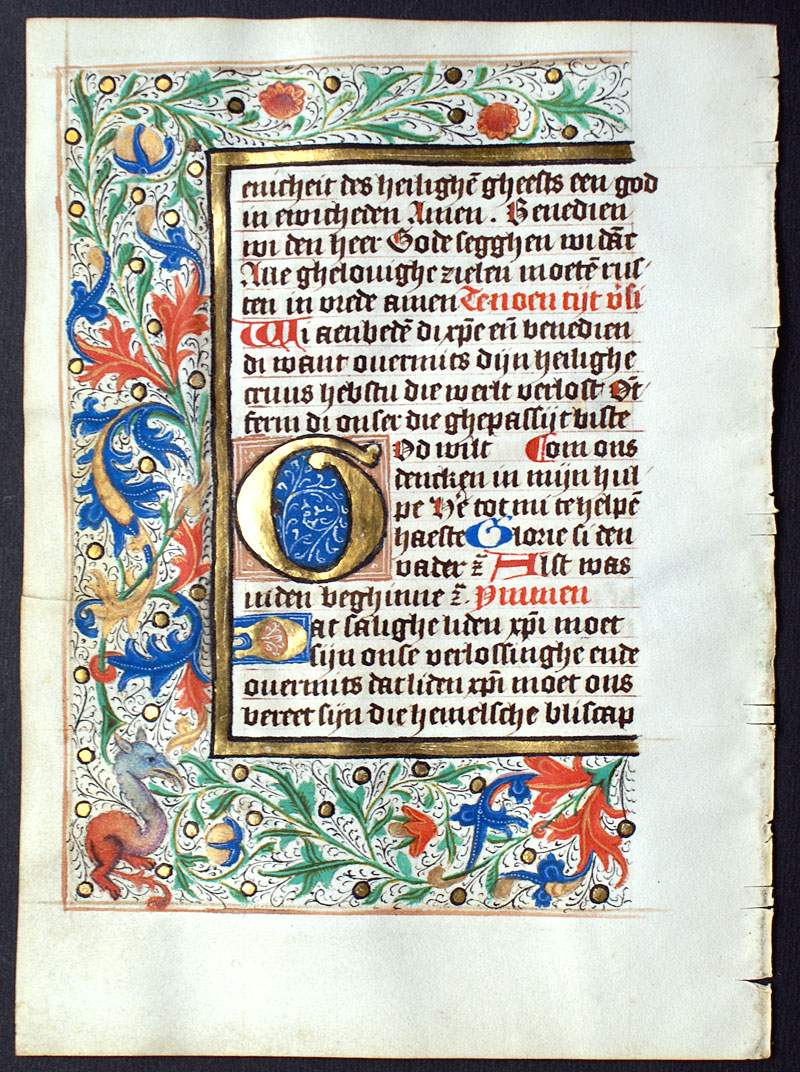 enicheit des heilighē gheests een god
in ewicheden Amen . Benedien
wi den heer Gode segghen wi dāc
Alle ghelouighe zielen moetē rus-
ten in vrede amen Te noen tijt v̄si
Wi aenbedē di xp̄e en̄ benedien
di want ouermits dijn heilighe
cruus hebstu die werlt verlost Ōt-
ferm di onser die ghepassijt biste
God wilt Com ons
dencken in mijn hul
pe He᷑ tot mi te helpē
haeste Glorie si den
vader z̄ Alst was
inden beghinne z̄. Ymmen
Dat salighe liden xp̄i moet
sijn onse verlossinghe ende
ouermits dat liden xp̄i moet ons
bereet sijn die hemelsche bliscap